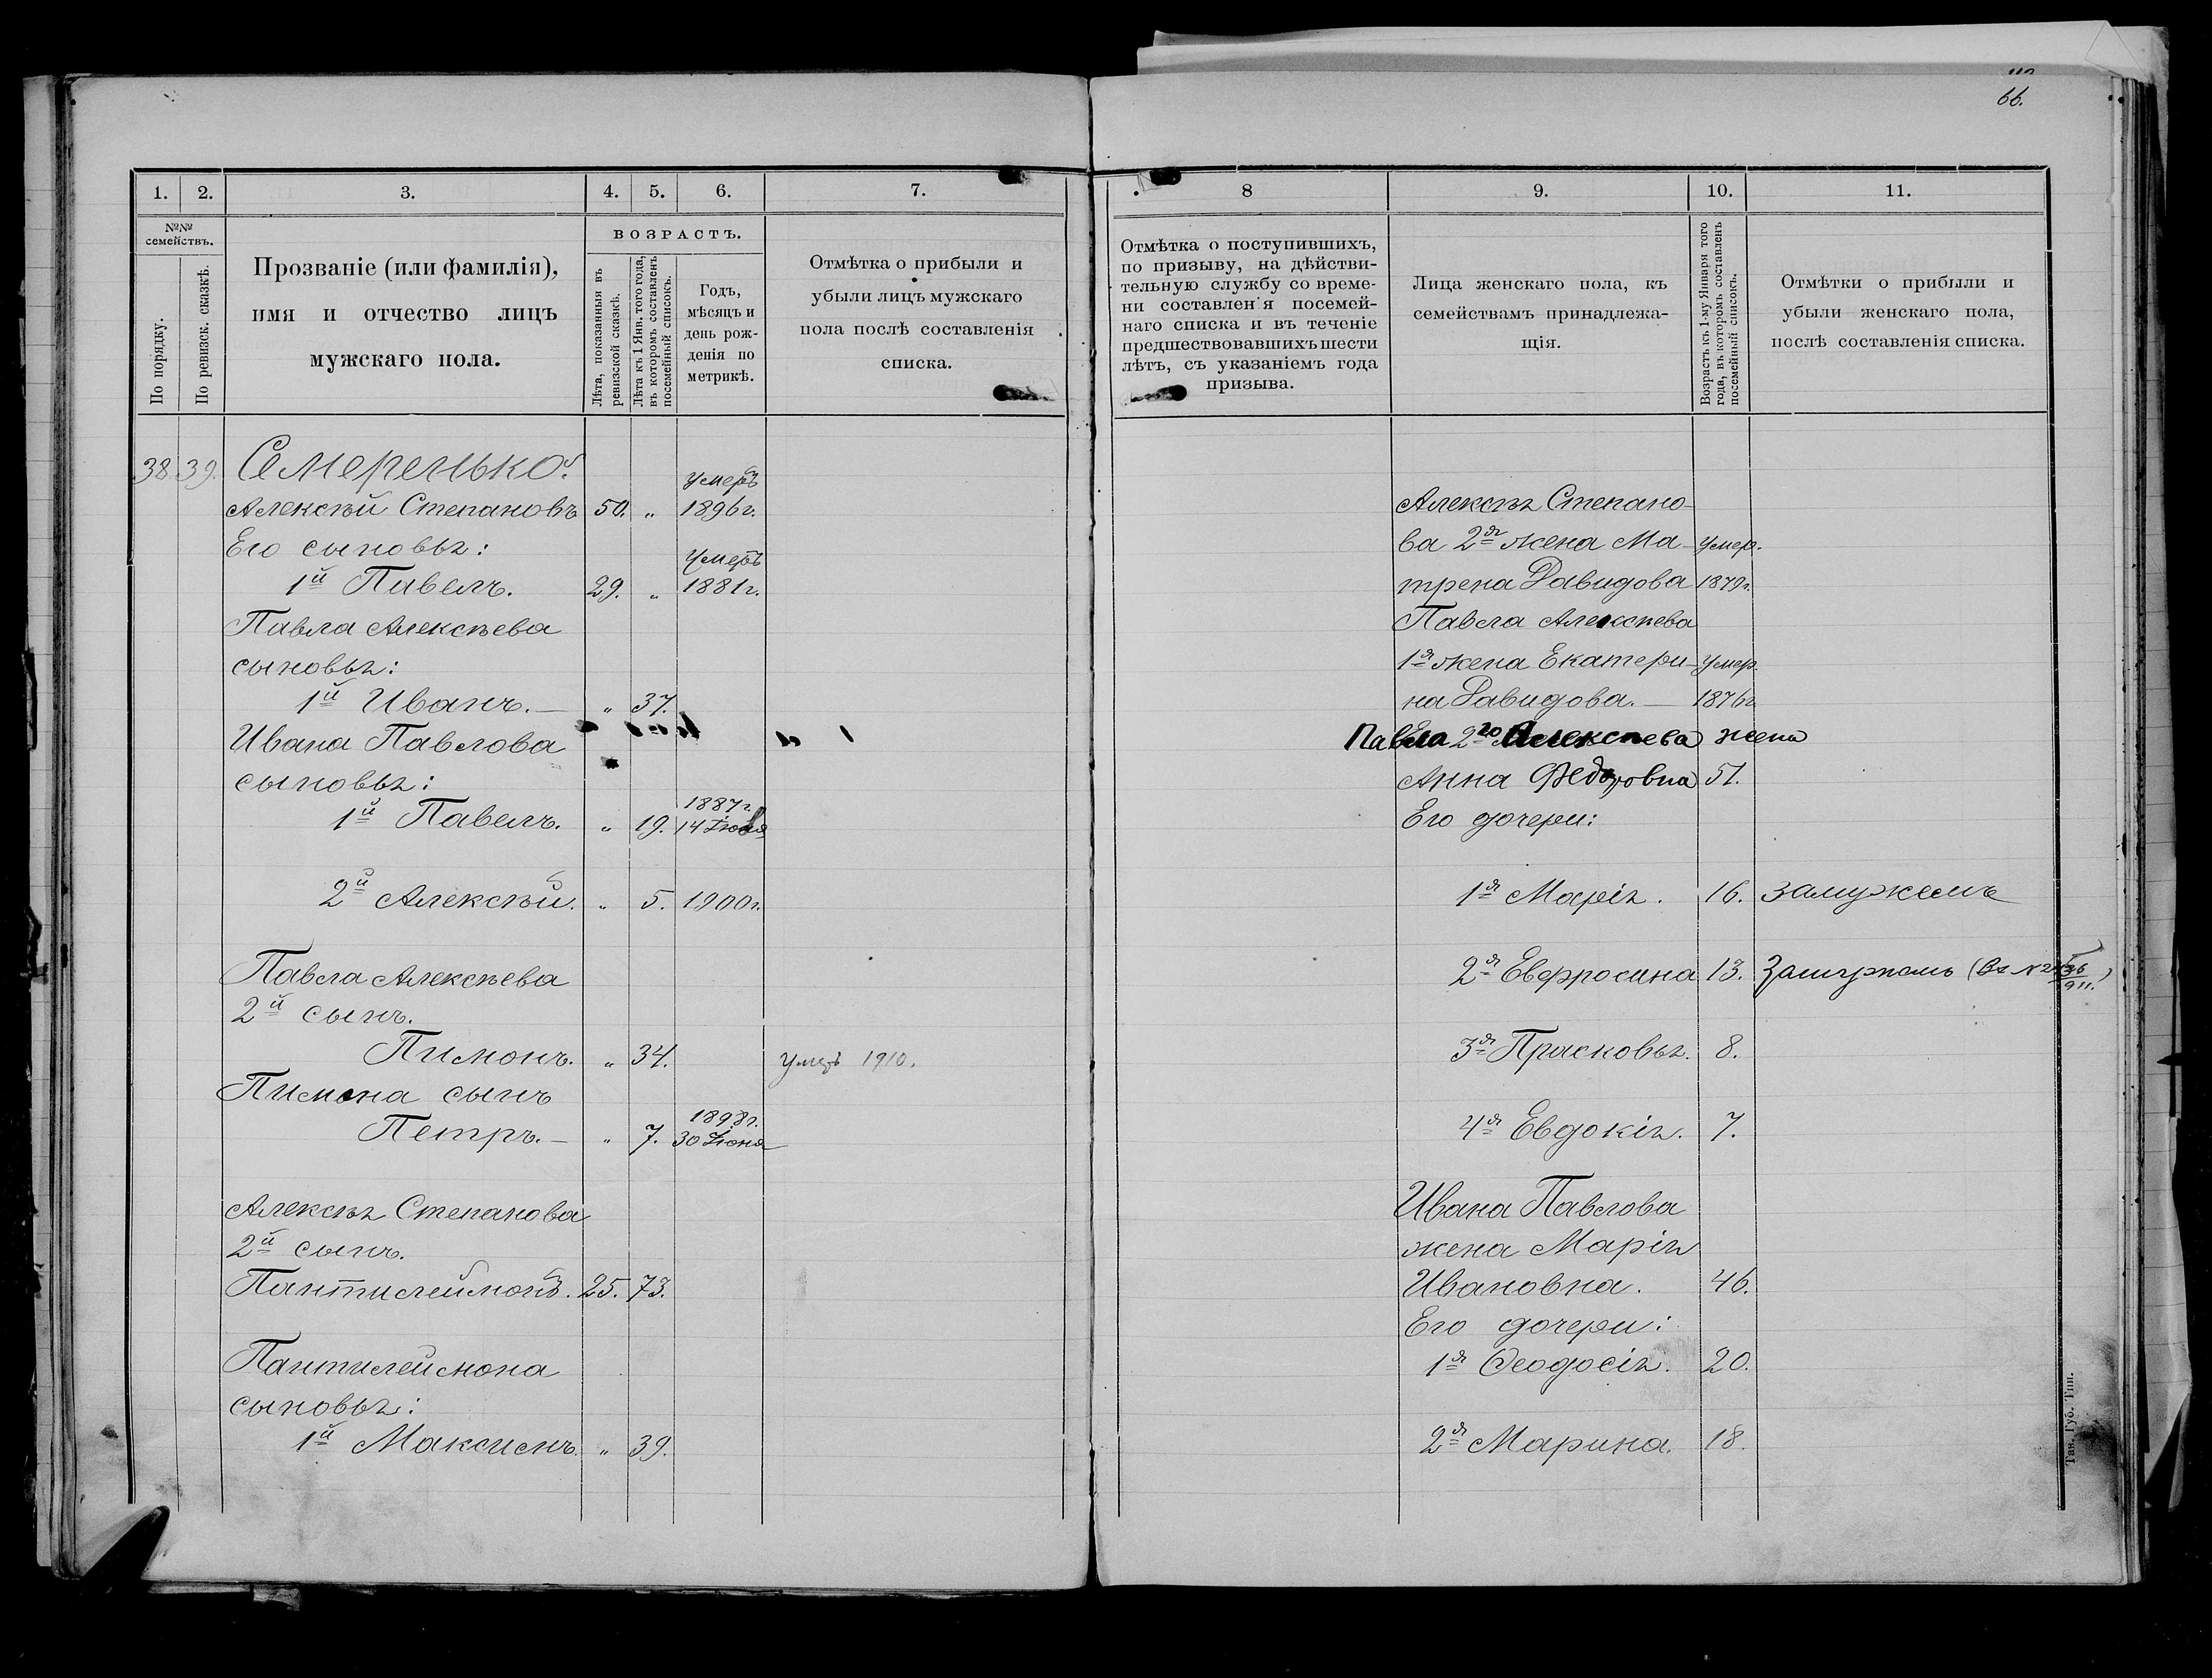 66.
1. 2. 3. 4. 5. 6. 7.
№№ семействъ.
По порядку.
По ревизск. сказкѣ.
Прозваніе (или фамилія),
имя и отчество лицъ
мужскаго пола.
ВОЗРАСТЪ.
Лѣта, показанныя въ
ревизской сказкѣ.
Лѣта къ 1 Янв. того года,
въ которомъ составленъ
посемейный списокъ.
Годъ,
мѣсяцъ и
день рож-
денія по
метрикѣ.
Отмѣтка о прибыли и
убыли лицъ мужскаго
пола послѣ составленія
списка.
38. 39. Семеренько.
умеръ
Алексѣй Степановъ 50. „ 1896 г.
Его сыновья:
Умеръ
1й Павелъ. 29. „ 1881 г.
Павла Алексѣева
сыновья:
1й Иванъ. — „ 37.
Ивана Павлова
сыновья:
1887 г.
1й Павелъ. „ 19. 14
2й Алексѣй. „ 5. 1900 г.
Павла Алексѣева
2й сынъ.
Пимонъ. „ 34. Умеръ 1910.
Пимона сынъ
1898 г.
Петръ. — „ 7. 30 Іюня
Алексѣя Степанова
2й сынъ.
Пантилеймонъ. 25. 73.
Пантилеймона
сыновья:
1й Максимъ. „ 39.
8 9. 10. 11.
Отмѣтка о поступившихъ,
по призыву, на дѣйстви-
тельную службу со време-
ни составленія посемей-
наго списка и въ теченіе
предшествовавшихъ шести
лѣтъ, съ указаніемъ года
призыва.
Лица женскаго пола, къ
семействамъ принадлежа-
щія.
Возрастъ къ 1-му Января того
года, въ которомъ составленъ
посемейный списокъ.
Отмѣтки о прибыли и
убыли женскаго пола,
послѣ составленія списка.
Алексѣя Степано-
ва 2я жена Ма- умер.
трена Давидова 1879 г.
Павла Алексѣева
1я жена Екатери- умер.
на Давидова. — 1876 г.
Павла 2го Алексѣева жена
Анна Федоровна 51.
Его дочери:
1я Марія. 16. замужемъ
2я Евфросина 13. Замужемъ
3я Прасковья. 8.
4я Евдокія. 7.
Ивана Павлова
жена Марія
Ивановна. 46.
Его дочери:
1я Ѳеодосія. 20.
2я Марина. 18.
Тав. Губ. Тип.